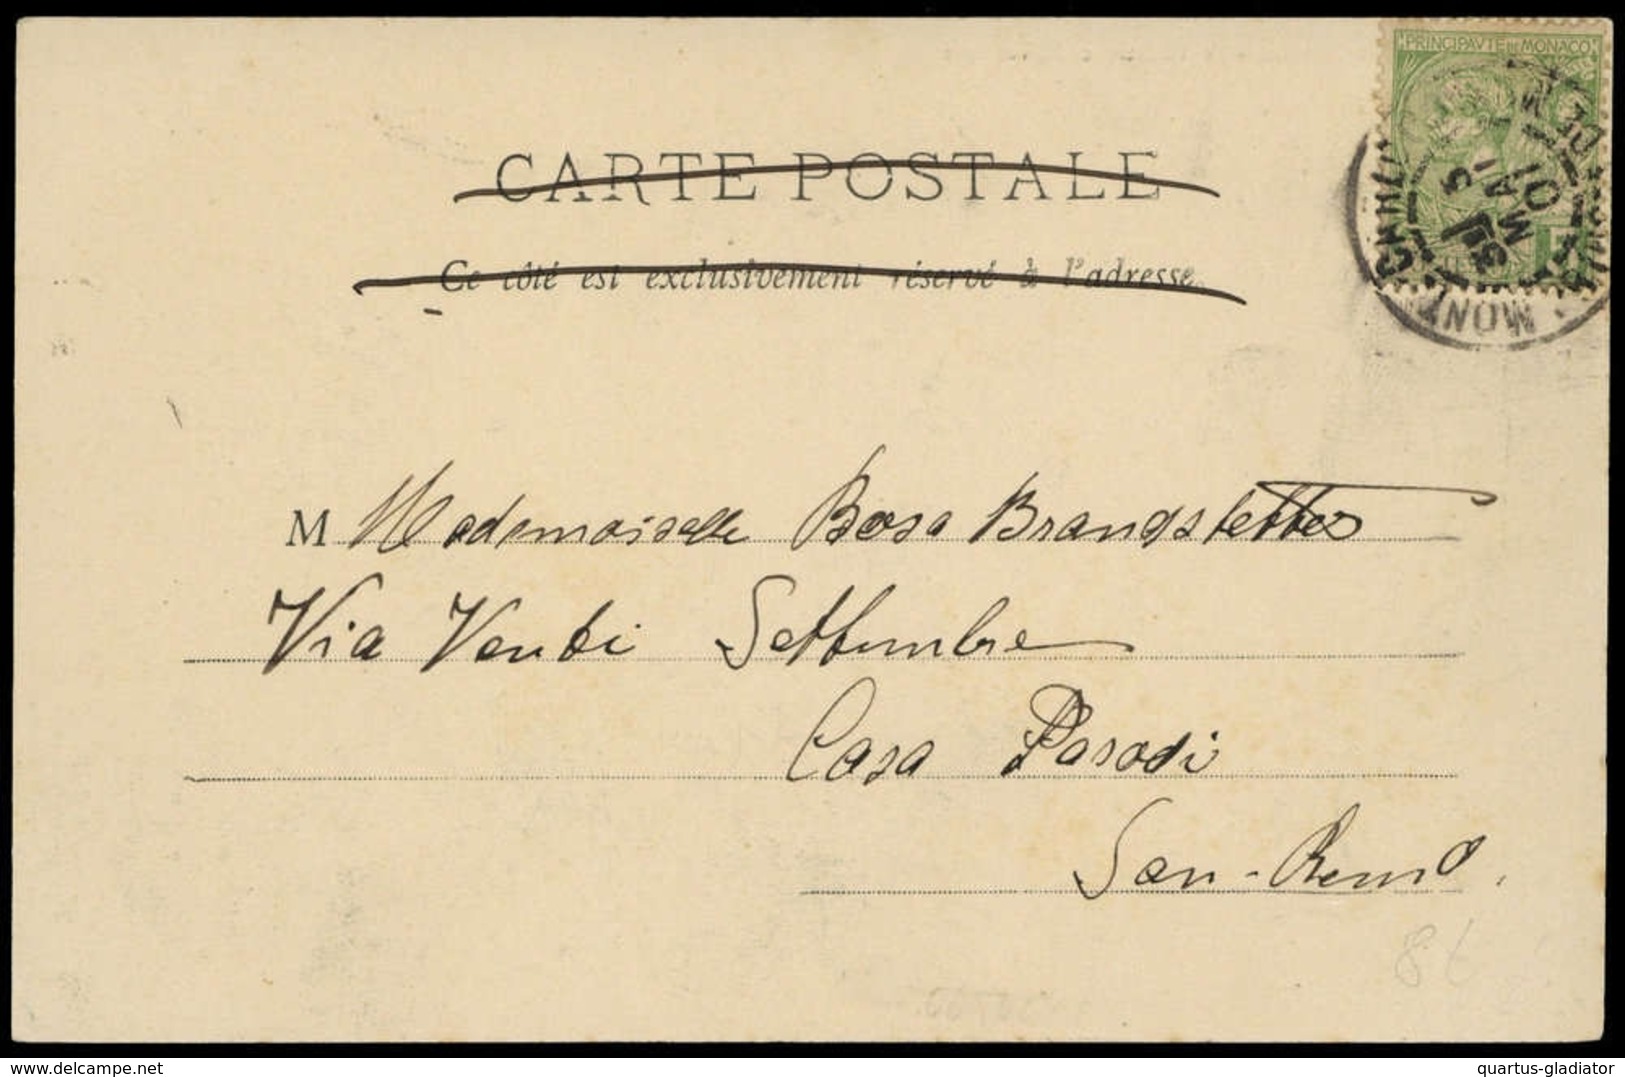 PRINCIPAVTE DE MONACO
CARTE POSTALE
Ce côté est exclusivement réservé à l'adresse.
5
MAI
01
M Mademoiselle Rosa Brandstetter
Via Venti Settembre
Casa Parodi
San-Remo.
8t
delcampe.net
quartus-gladiator